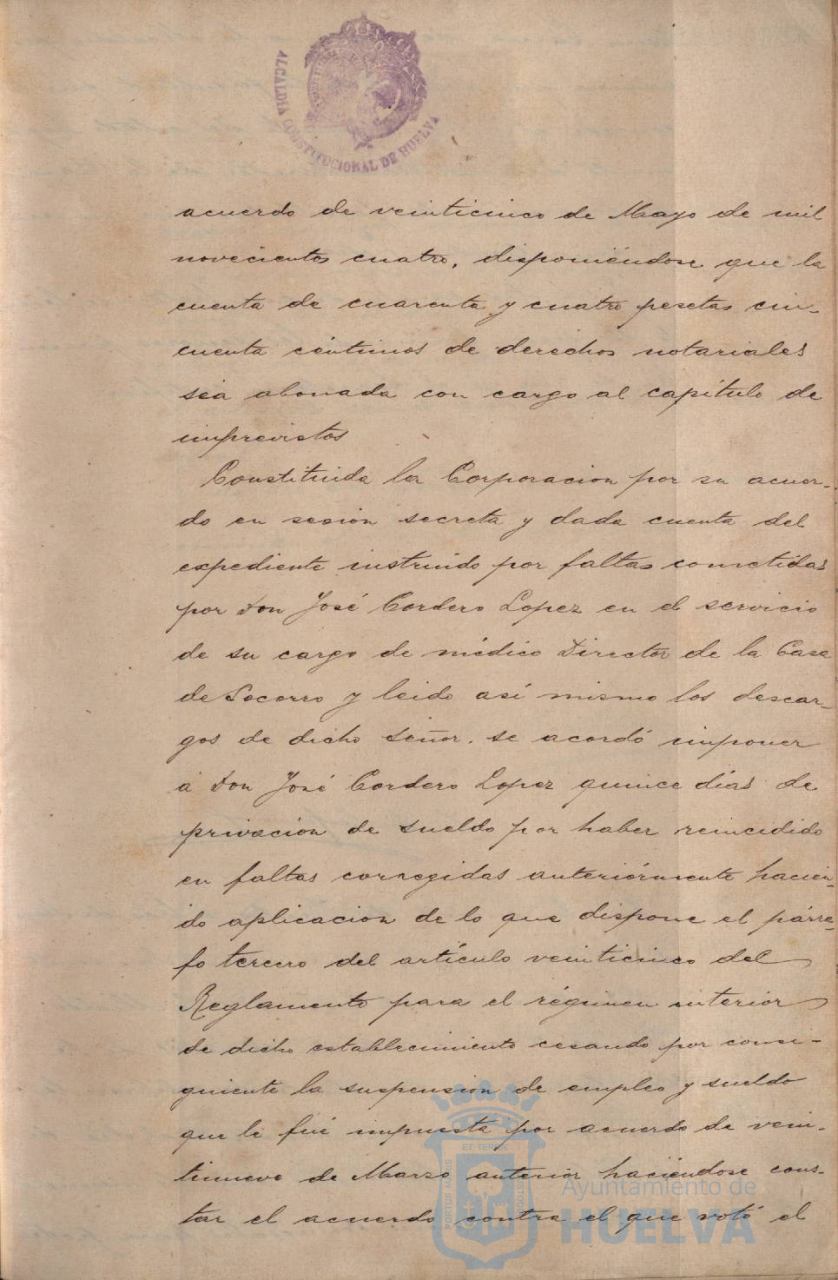 ALCALDIA CONSTITUCIONAL DE HUELVA
acuerdo de veinticinco de Mayo de mil
novecientos cuatro, disponiéndose que la
cuenta de cuarenta y cuatro pesetas cin-
cuenta céntimos de derechos notariales
sea abonada con cargo al capítulo de
imprevistos
Constituida la Corporacion por su acuer-
do en sesión secreta y dada cuenta del
expediente instruido por faltas cometidas
por Don José Cordero Lopez en el servicio
de su cargo de médico Director de la Casa
de Socorro y leido así mismo los descar-
gos de dicho señor. se acordó imponer
á Don José Cordero Lopez quince días de
privacion de sueldo por haber reincidido
en faltas corregidas anteriórmente hacien-
do aplicacion de lo que dispone el párra-
fo tercero del artículo veinticinco del
Reglamento para el régimen interior
de dicho establecimiento cesando por consi-
guiente la suspension de empleo y sueldo
que le fué impuesta por acuerdo de vein-
tinueve de Marzo anterior haciéndose cons-
tar el acuerdo contra el que votó el
Ayuntamiento de
HUELVA